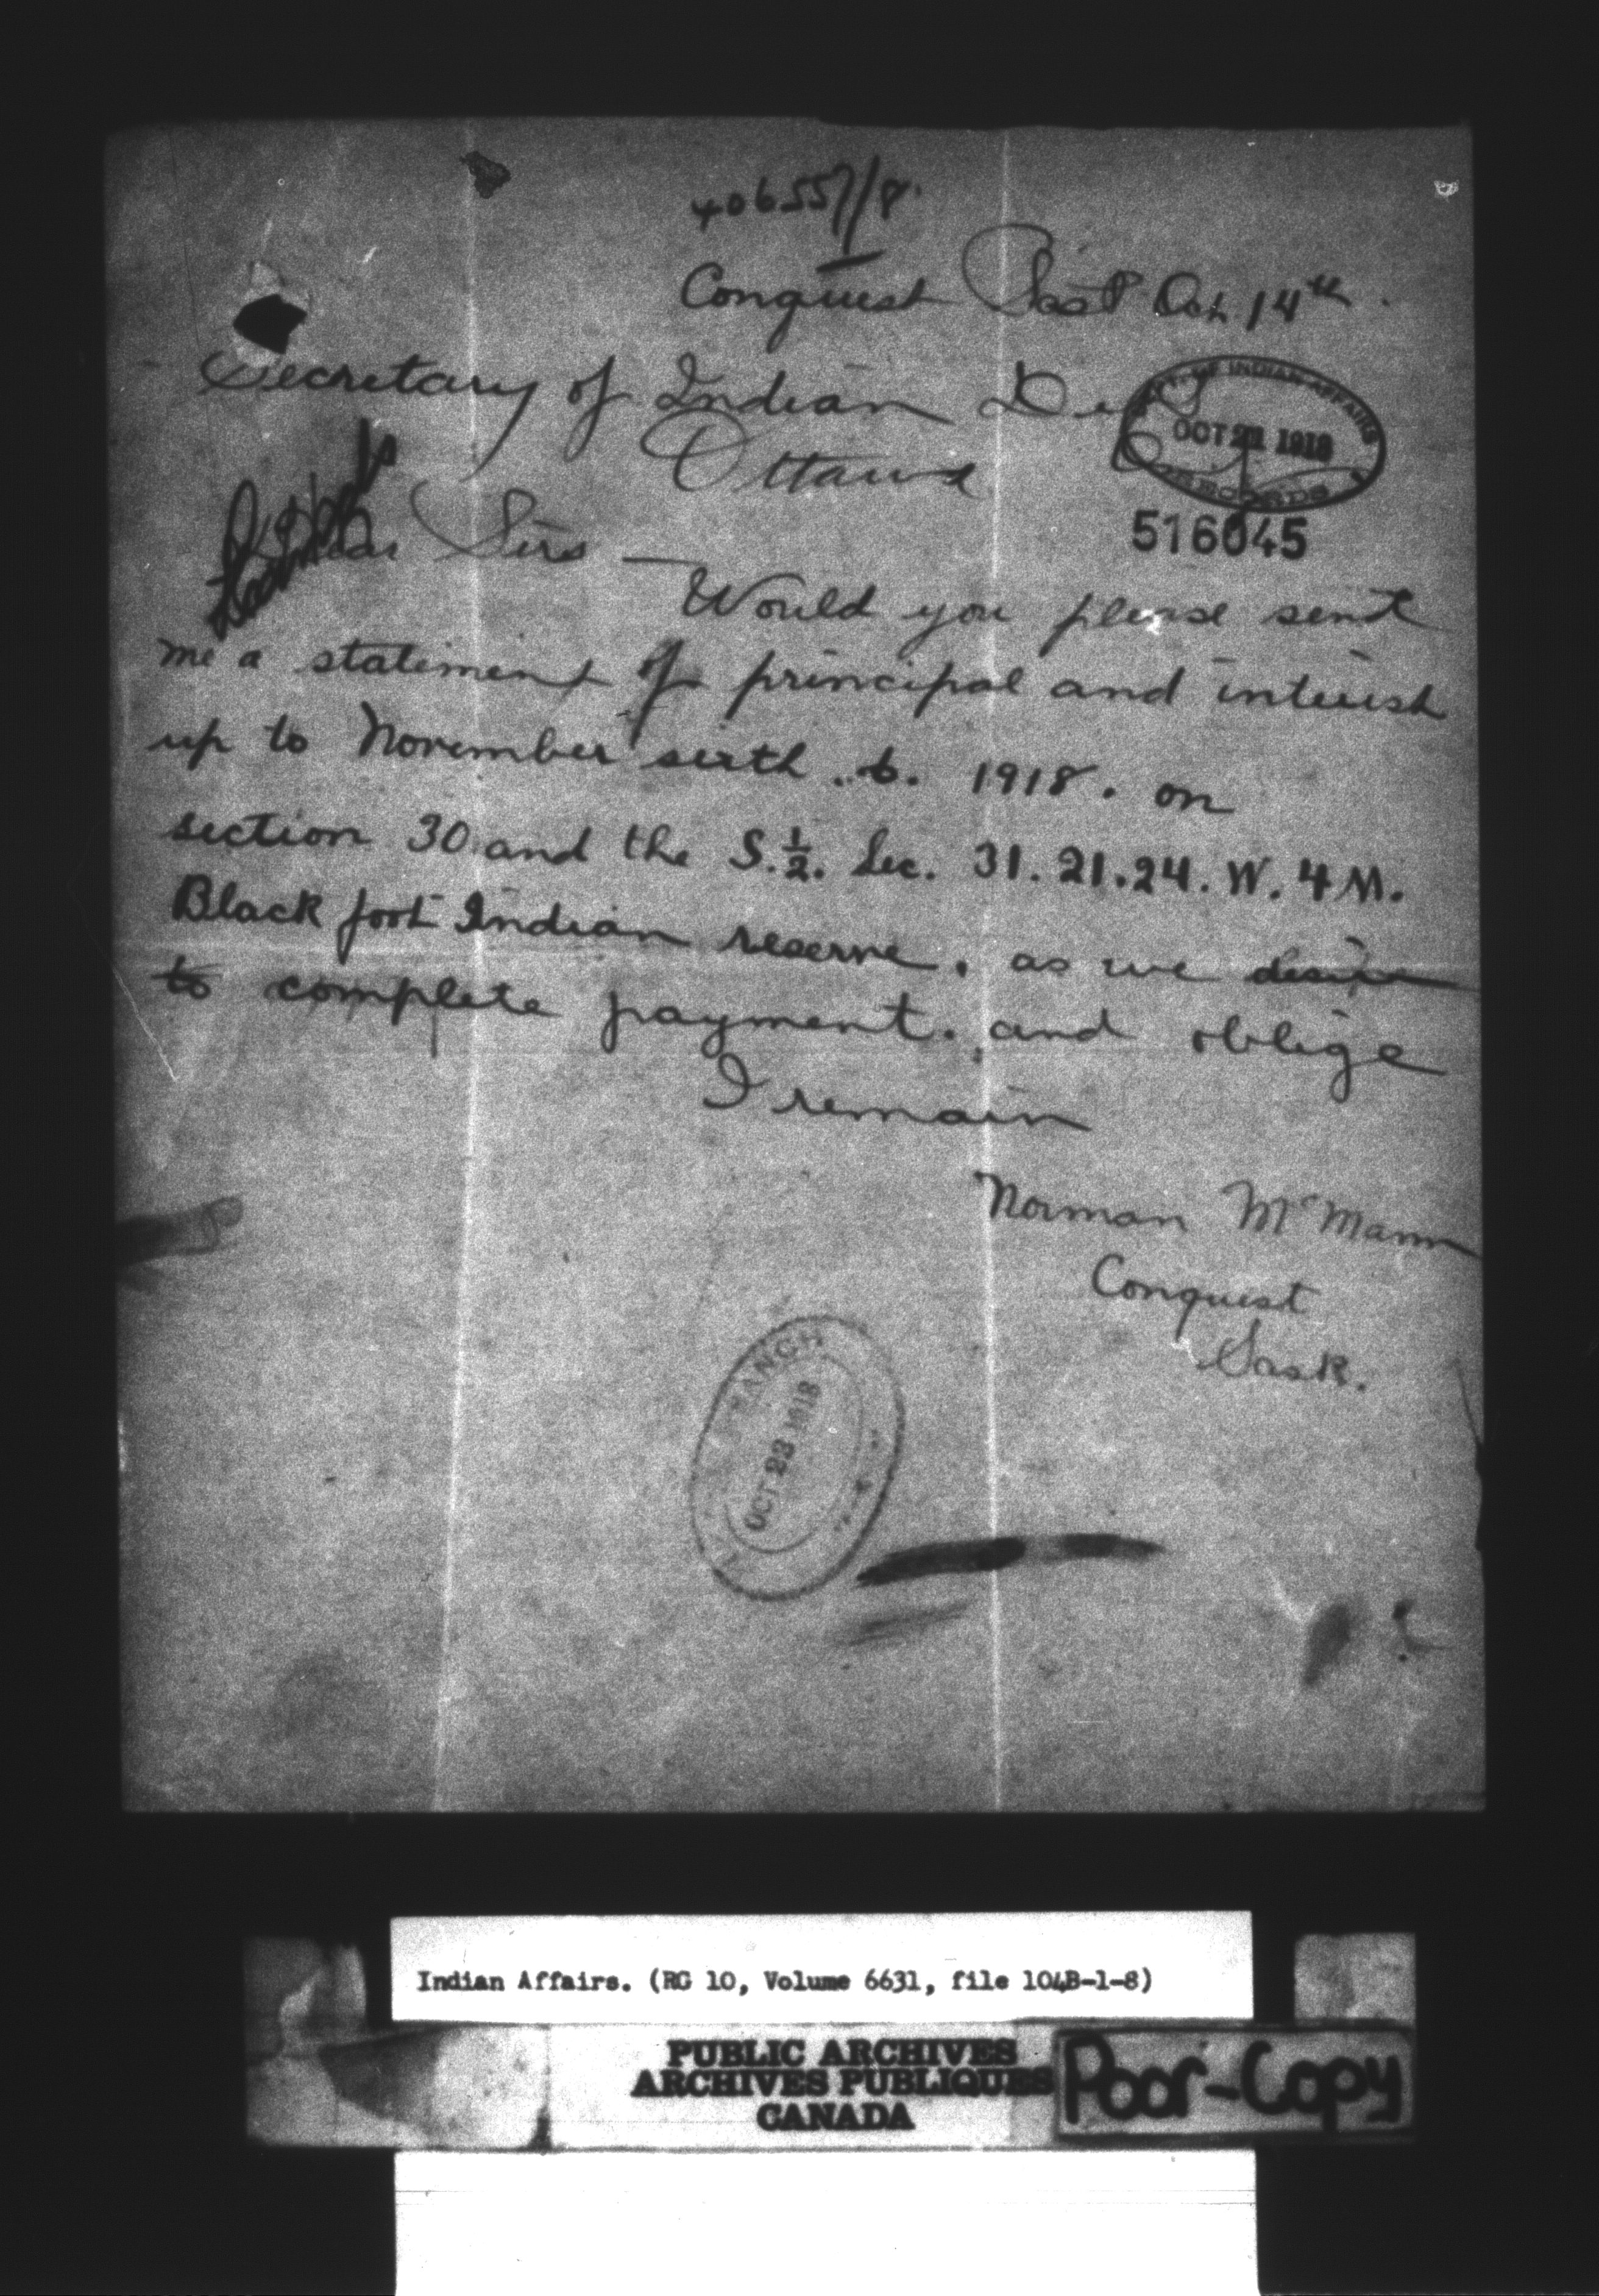 406557/8.
Conquest Sask Oct 14th.
Secretary of Indian
DEPT. OF INDIAN AFFAIRS
OCT 21 1918
RECORDS
Ottawa
516045
Dear Sirs —
Would you please sent
me a statement of principal and interest
up to November sixth . 6. 1918. on
section 30 and the S. ½. Sec. 31. 21. 24. W. 4 M.
Black foot Indian reserve, as we desire
to complete payment. and oblige
I remain
Norman McMann
Conquest
Sask.
OCT 23 1918
Indian Affairs. (RG 10, Volume 6631, file 104B-1-8)
PUBLIC ARCHIVES
ARCHIVES PUBLIQUES
CANADA
Poor-Copy